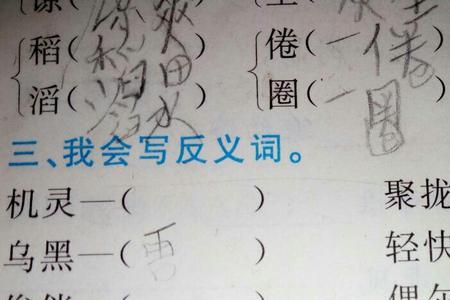 稻(稻田) 倦(一倦)
滔(滔水) 圈(一圈)
三、我会写反义词。
机灵—( ) 聚拢
乌黑—(雪 ) 轻快